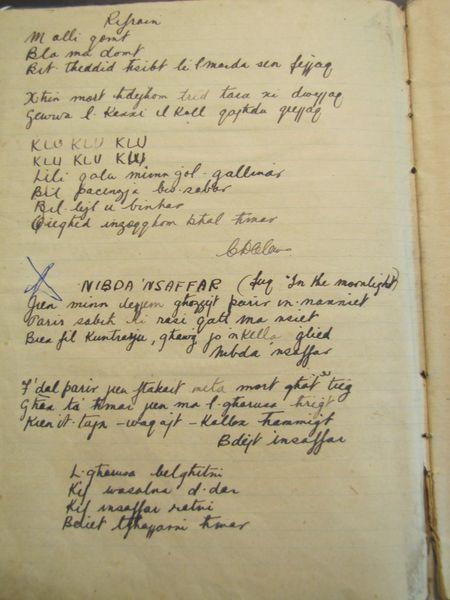 Refrain
M'alli qomt
Bla ma domt
Bit-theddid tsibt li l-marda sen fejjaq
Xhin mort hdejhom trid tara xi dwejjaq
Gewwa l-Kaxxi il Koll qajtdu qrejjaq
KLU KLU KLU
KLU KLU KLU
Lili qalu minn gol-gallinar
Bil pacenzja bis-sabar
Bil-lejl u binhar
Qieghid inzoqqhom bhal hmar
NIBDA 'NSAFFAR (fuq "In the moonlight)
Jien minn dejjem ghozzejt parir in-nanniet
Parir sabih li rasi qatt ma nsiet
Biex fil Kuntratju, ghawg jo nkella glied
Nibda 'nsaffar
F'dal parir jien ftakart meta mort ghat-tieg
Ghax ta' hmar jien ma l-gharusa hrigt
Kien it-tajn - waqajt - Kollox hammigt
Bdejt insaffar
L-gharusa belghitni
Kif wasalna d-dar
Kif insaffar ratni
Bdiet tghajjarni hmar